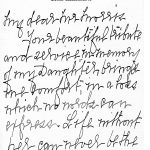 My dear Mr Morris
Your beautiful tribute
and service in memory
of my daughter brings
me comfort, in a loss
which no words can
express. Life without
her can never be the